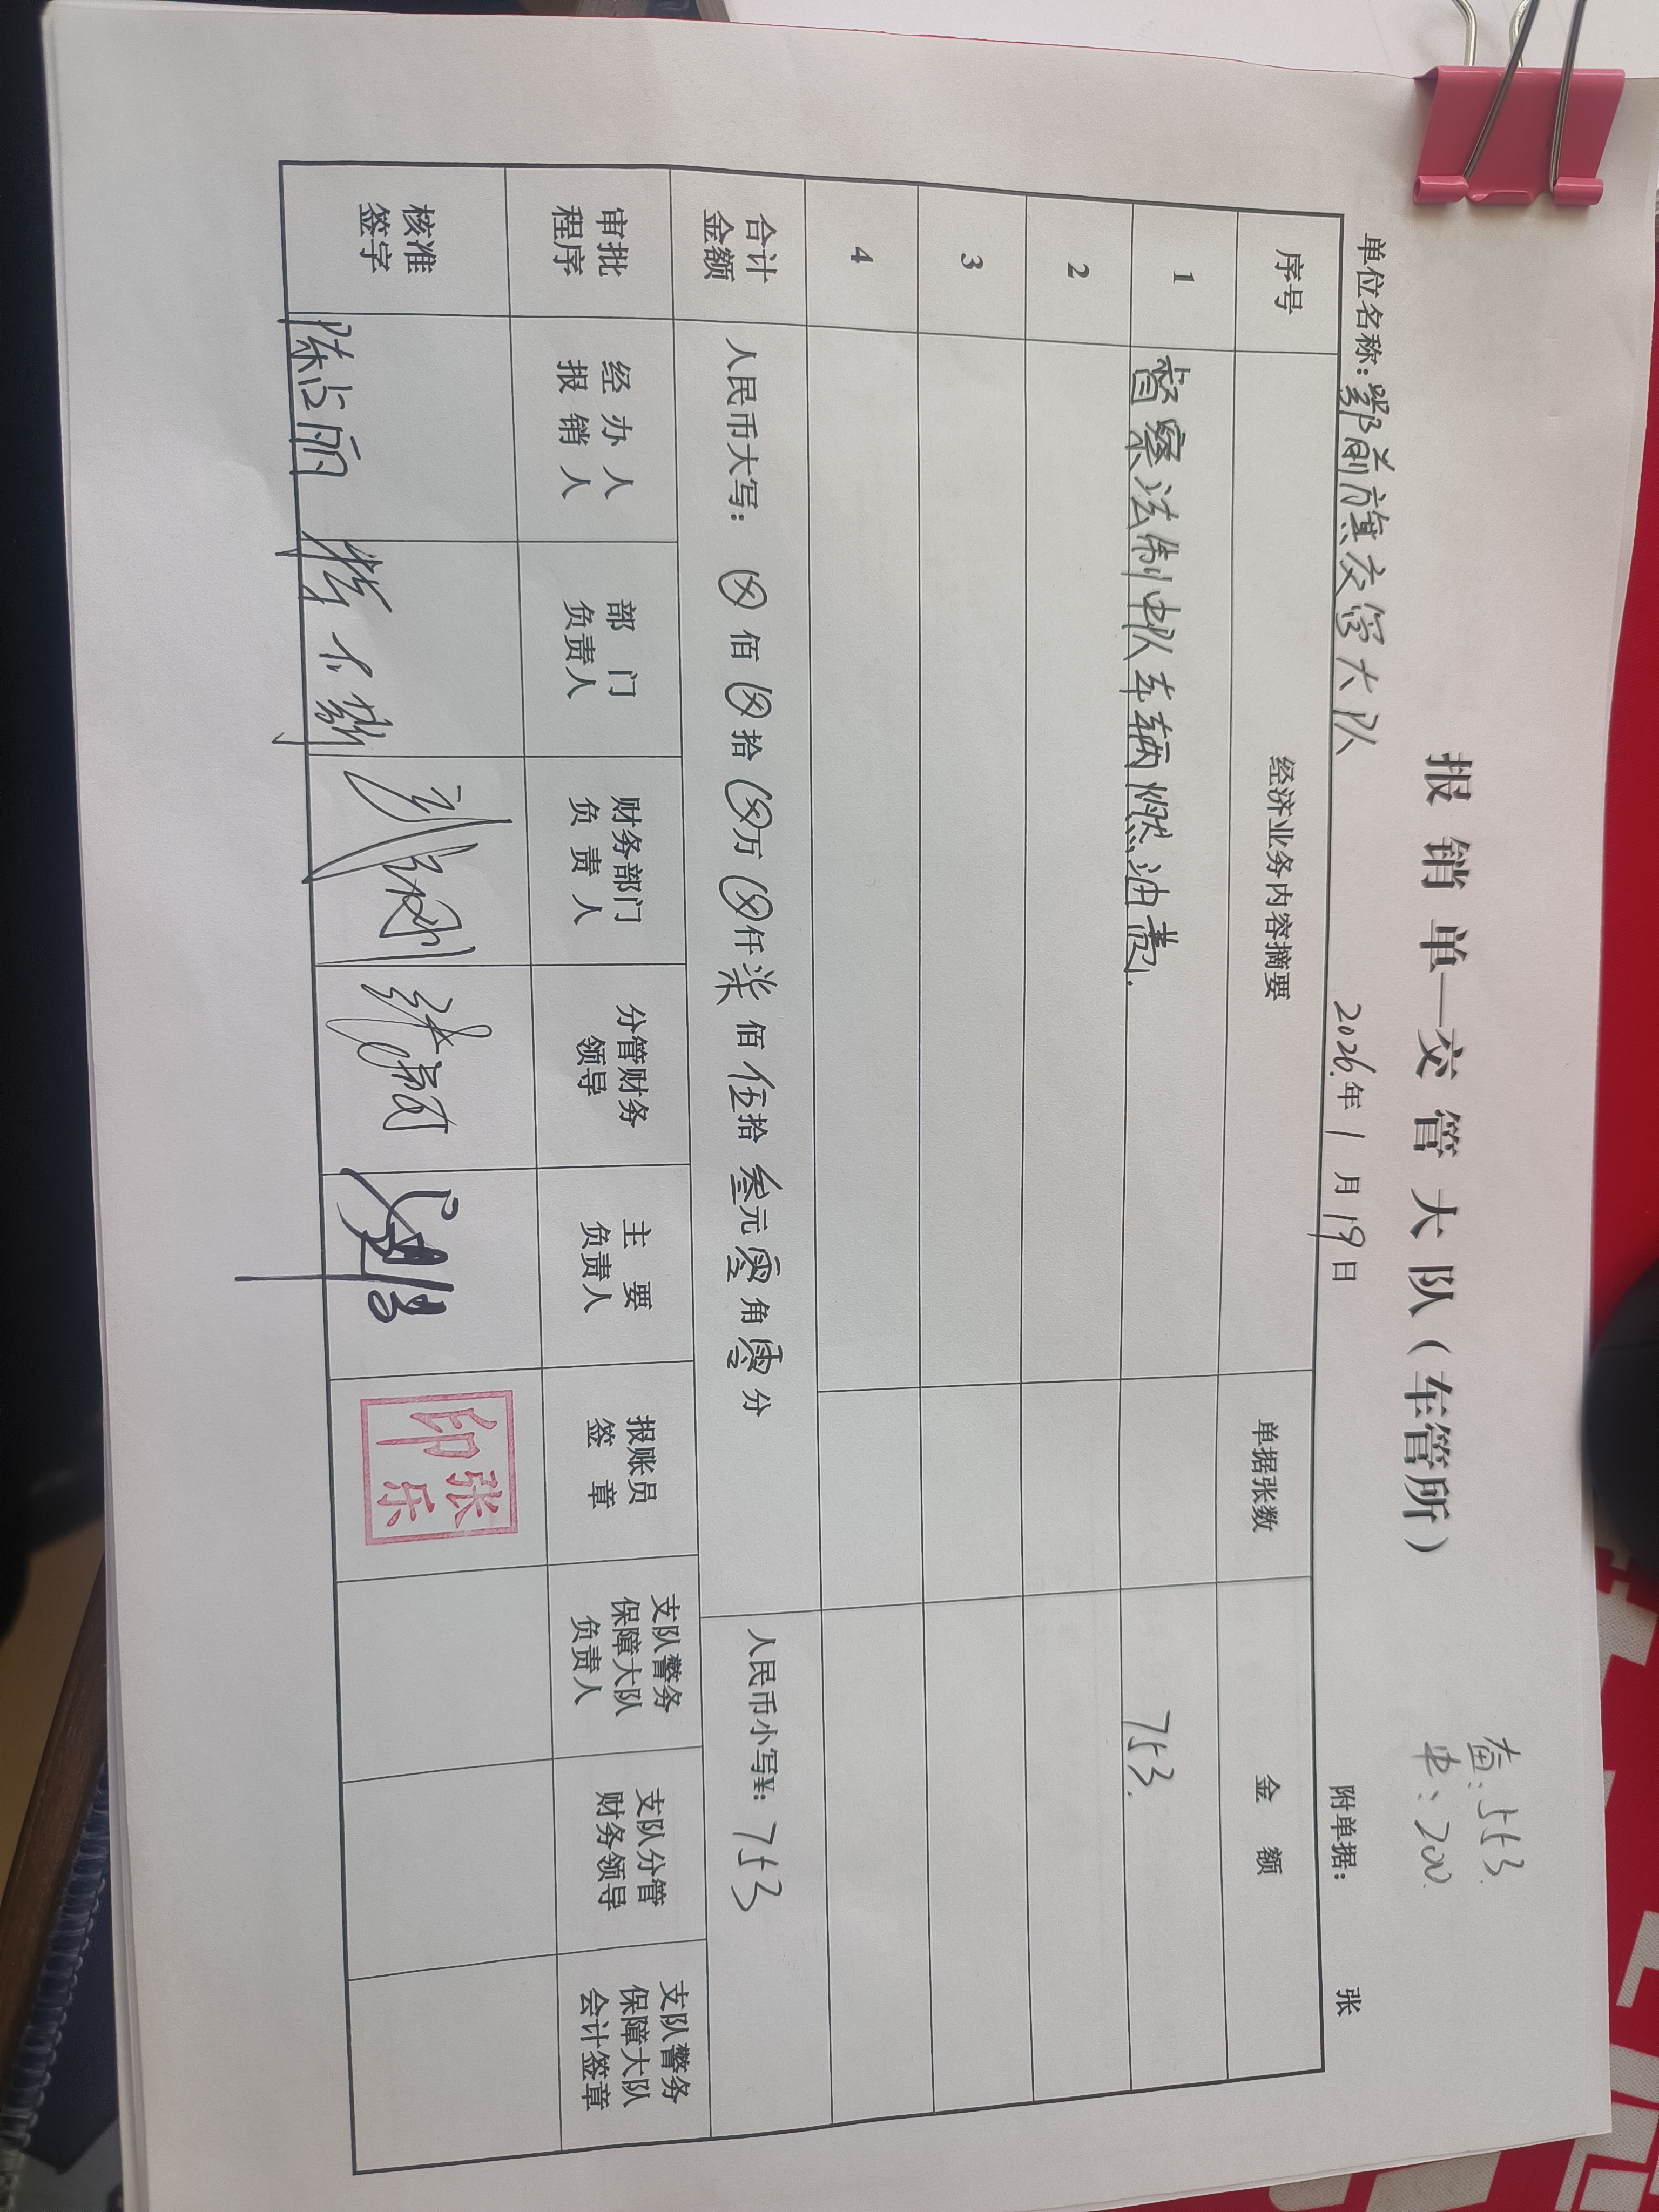 查:553
电:200
报销单—交管大队(车管所)
单位名称:鄂前旗交管大队 2026年1月19日 附单据: 张
序号 经济业务内容摘要 单据张数 金额
1 督察法制中队车辆燃油费. 753.
2
3
4
合计金额 人民币大写:⊗佰⊗拾⊗万⊗仟柒佰伍拾叁元零角零分 人民币小写¥:753
审批程序 经办人报销人 部门负责人 财务部门负责人 分管财务领导 主要负责人 报账员签章 支队警务保障大队负责人 支队分管财务领导 支队警务保障大队会计签章
核准签字 陈占丽 张乐印